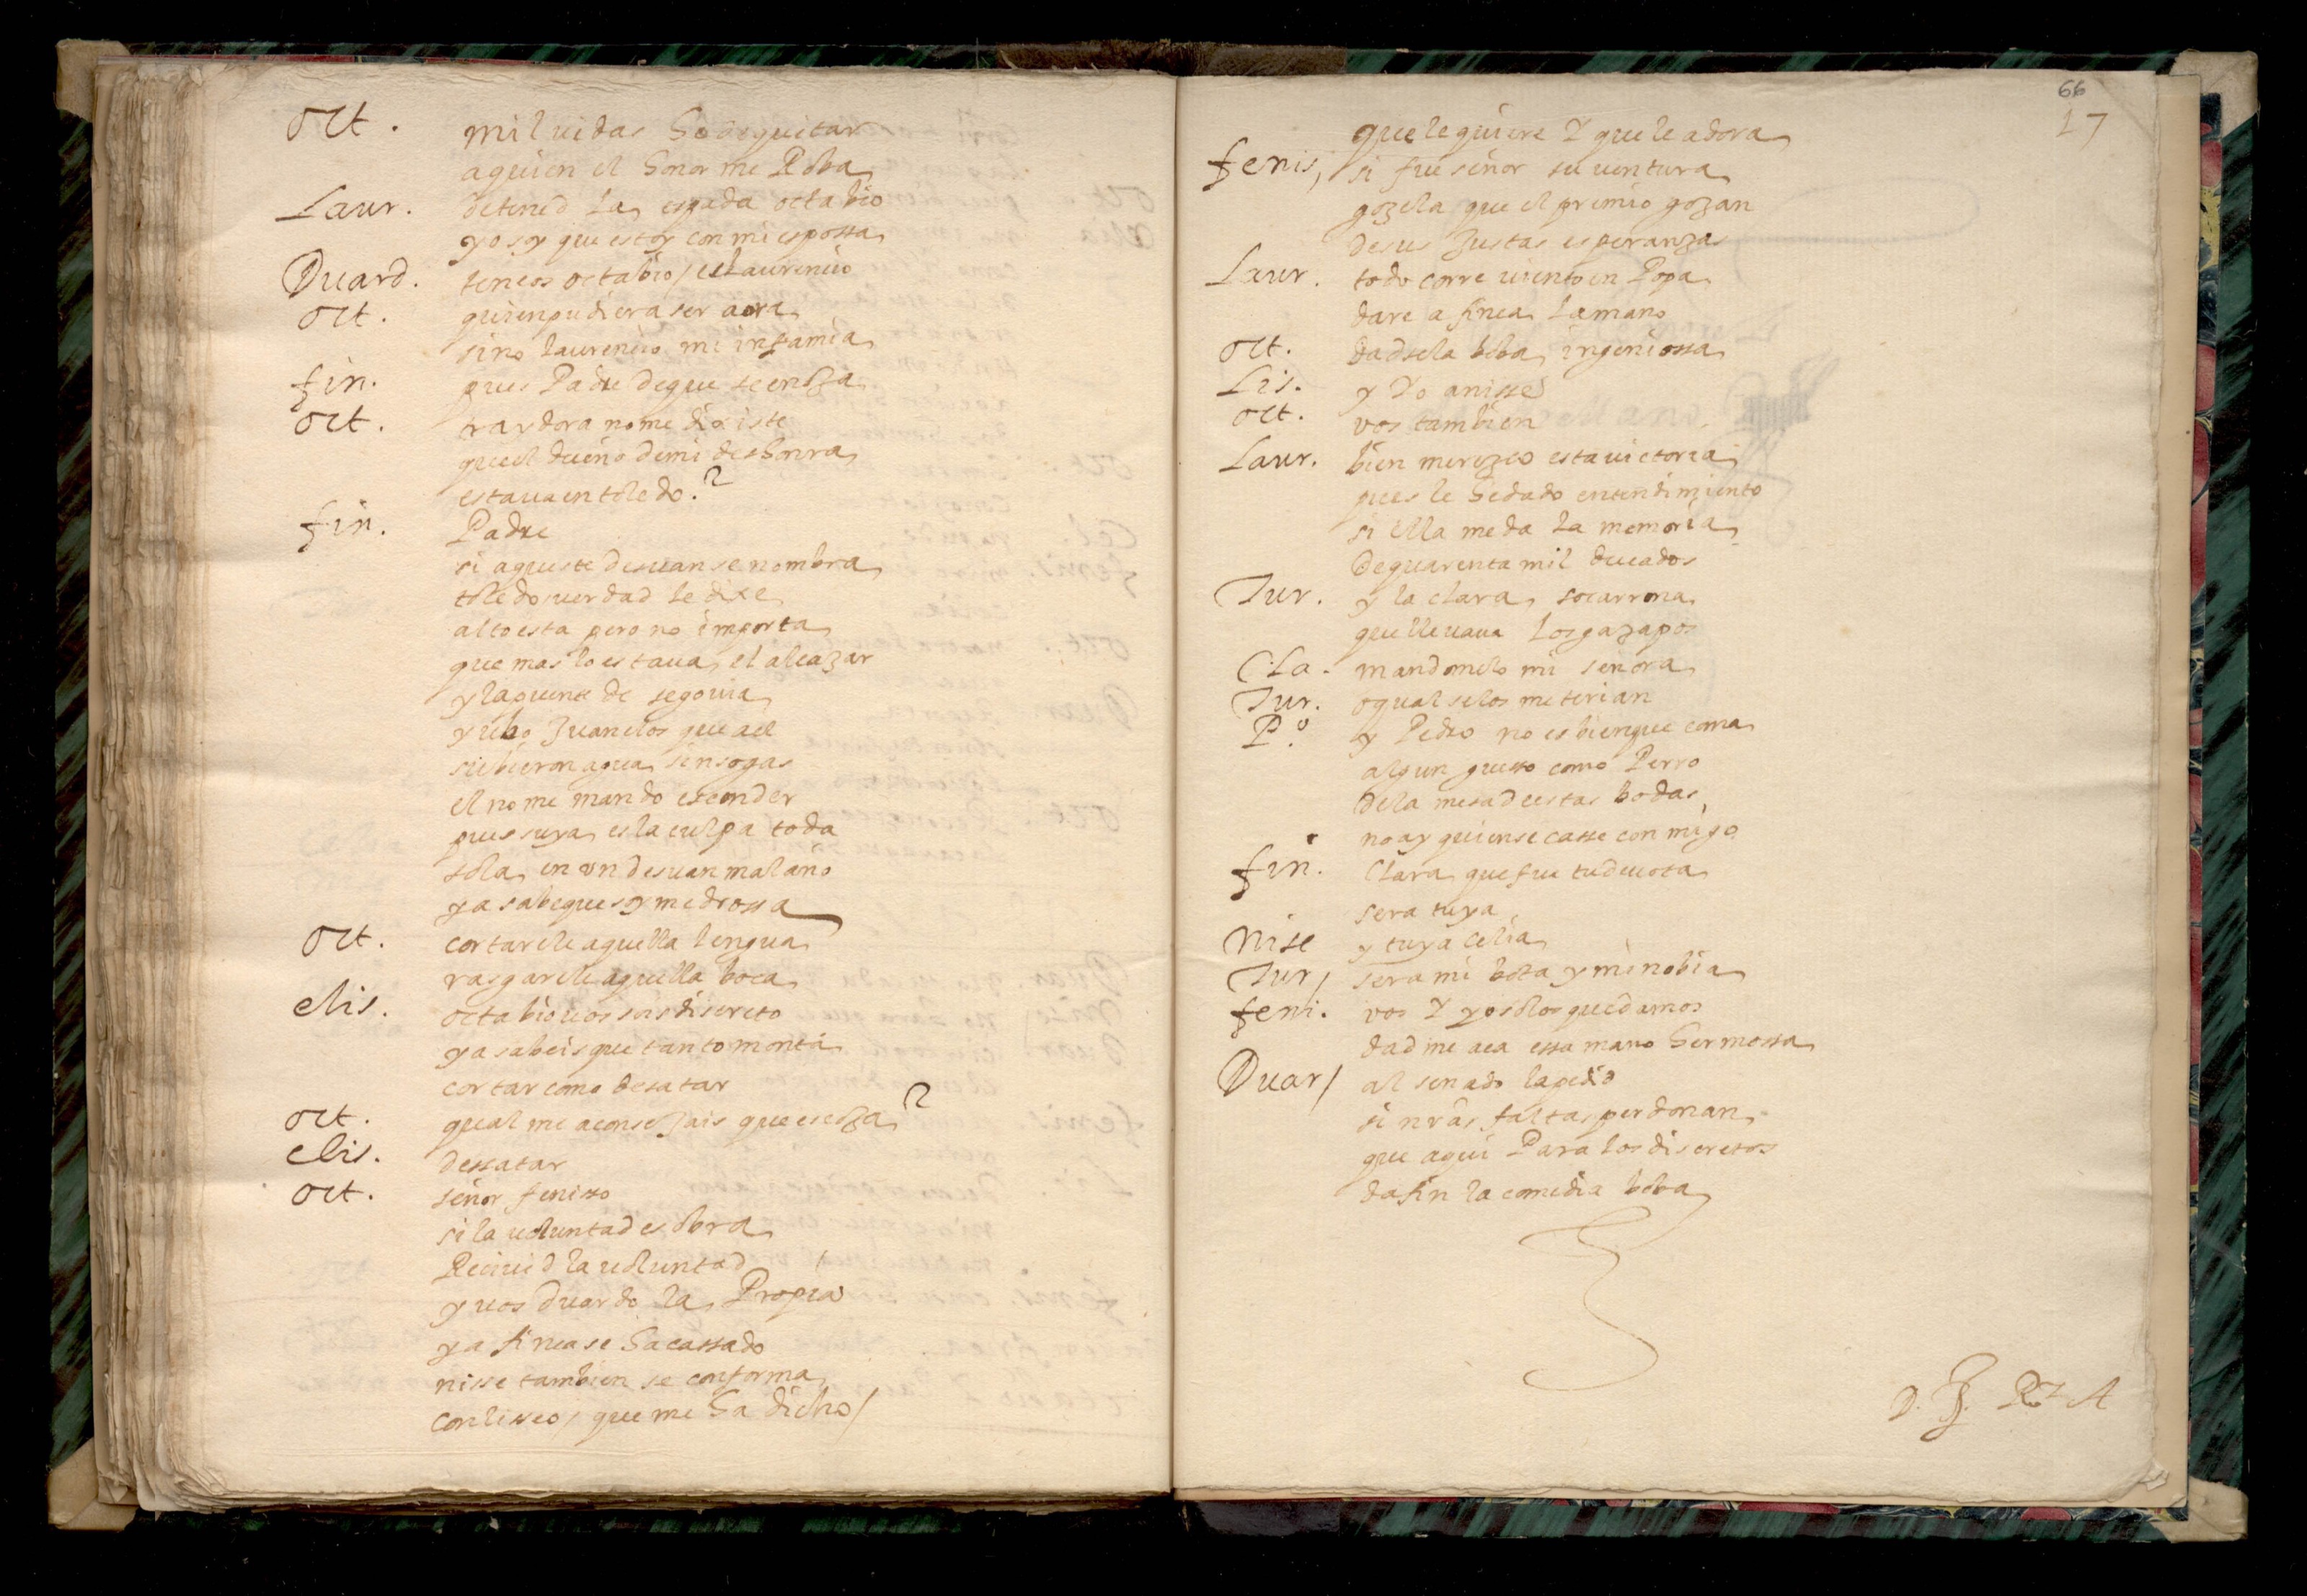 Oct. mil vidas he de quitar
a quien el honor me Roba
Laur. detened la espada octabio
yo soy que estoy con mi espossa
Duard. teneos octabio / es Laurencio
Oct. quien pudiera ser aora
sino laurencio mi infamia
fin. pues Padre de que se enoxa
Oct. traydora no me dixiste
que el dueño de mi deshonra
estaua en toledo?
fin. Padre
si aqueste desuan se nombra
toledo verdad le dixe
alto esta pero no importa
que mas lo estaua el alcazar
y la puente de segouia
y ubo Juanelos que a el
subieron agua sin sogas
el no me mando esconder
pues suya es la culpa toda
sola en un desuan mal año
ya sabe que soy medrossa
Oct. cortarele aquella lengua
rasgarele aquella boca
Mis. octabio vos sois discreto
ya sabeis que tanto monta
cortar como desatar
Oct. qual me aconsejais que escoxa?
Mis. dessatar
Oct. señor fenisso
si la voluntad es obra
Reciuid la voluntad
y vos duardo la Propia
ya finea se ha cassado
nisse tambien se conforma
con lisseo, que me ha dicho /
66
17
que le quiere Y que le adora
fenis, si fue señor su ventura
gozela que el premio gozan
de sus Justas esperanzas
Laur. todo corre viento en Popa
dare a finea la mano
Oct. dadsela boba ingeniossa
Lis. y Yo a nisse
Oct. vos tambien
Laur. bien merezco esta victoria
pues le he dado entendimiento
si ella me da la memoria
de quarenta mil ducados
Tur. y la clara socarrona
que lleuaua los gazapos
Cla. mandomelo mi señora
Tur. o qual se los meterian
P.º y Pedro no es bien que coma
algun guesso como Perro
de la mesa de estas bodas,
no ay quien se casse con migo
fin. Clara que fue tu deuota
sera tuya
Nise y tuya Celia
Tur / sera mi bota y mi nobia
feni. vos Y yo solos quedamos
dad me aca essa mano hermossa
Duar / al senado la pedid
si nrâs faltas perdonan
que aqui Para los discretos
da fin la comedia boba